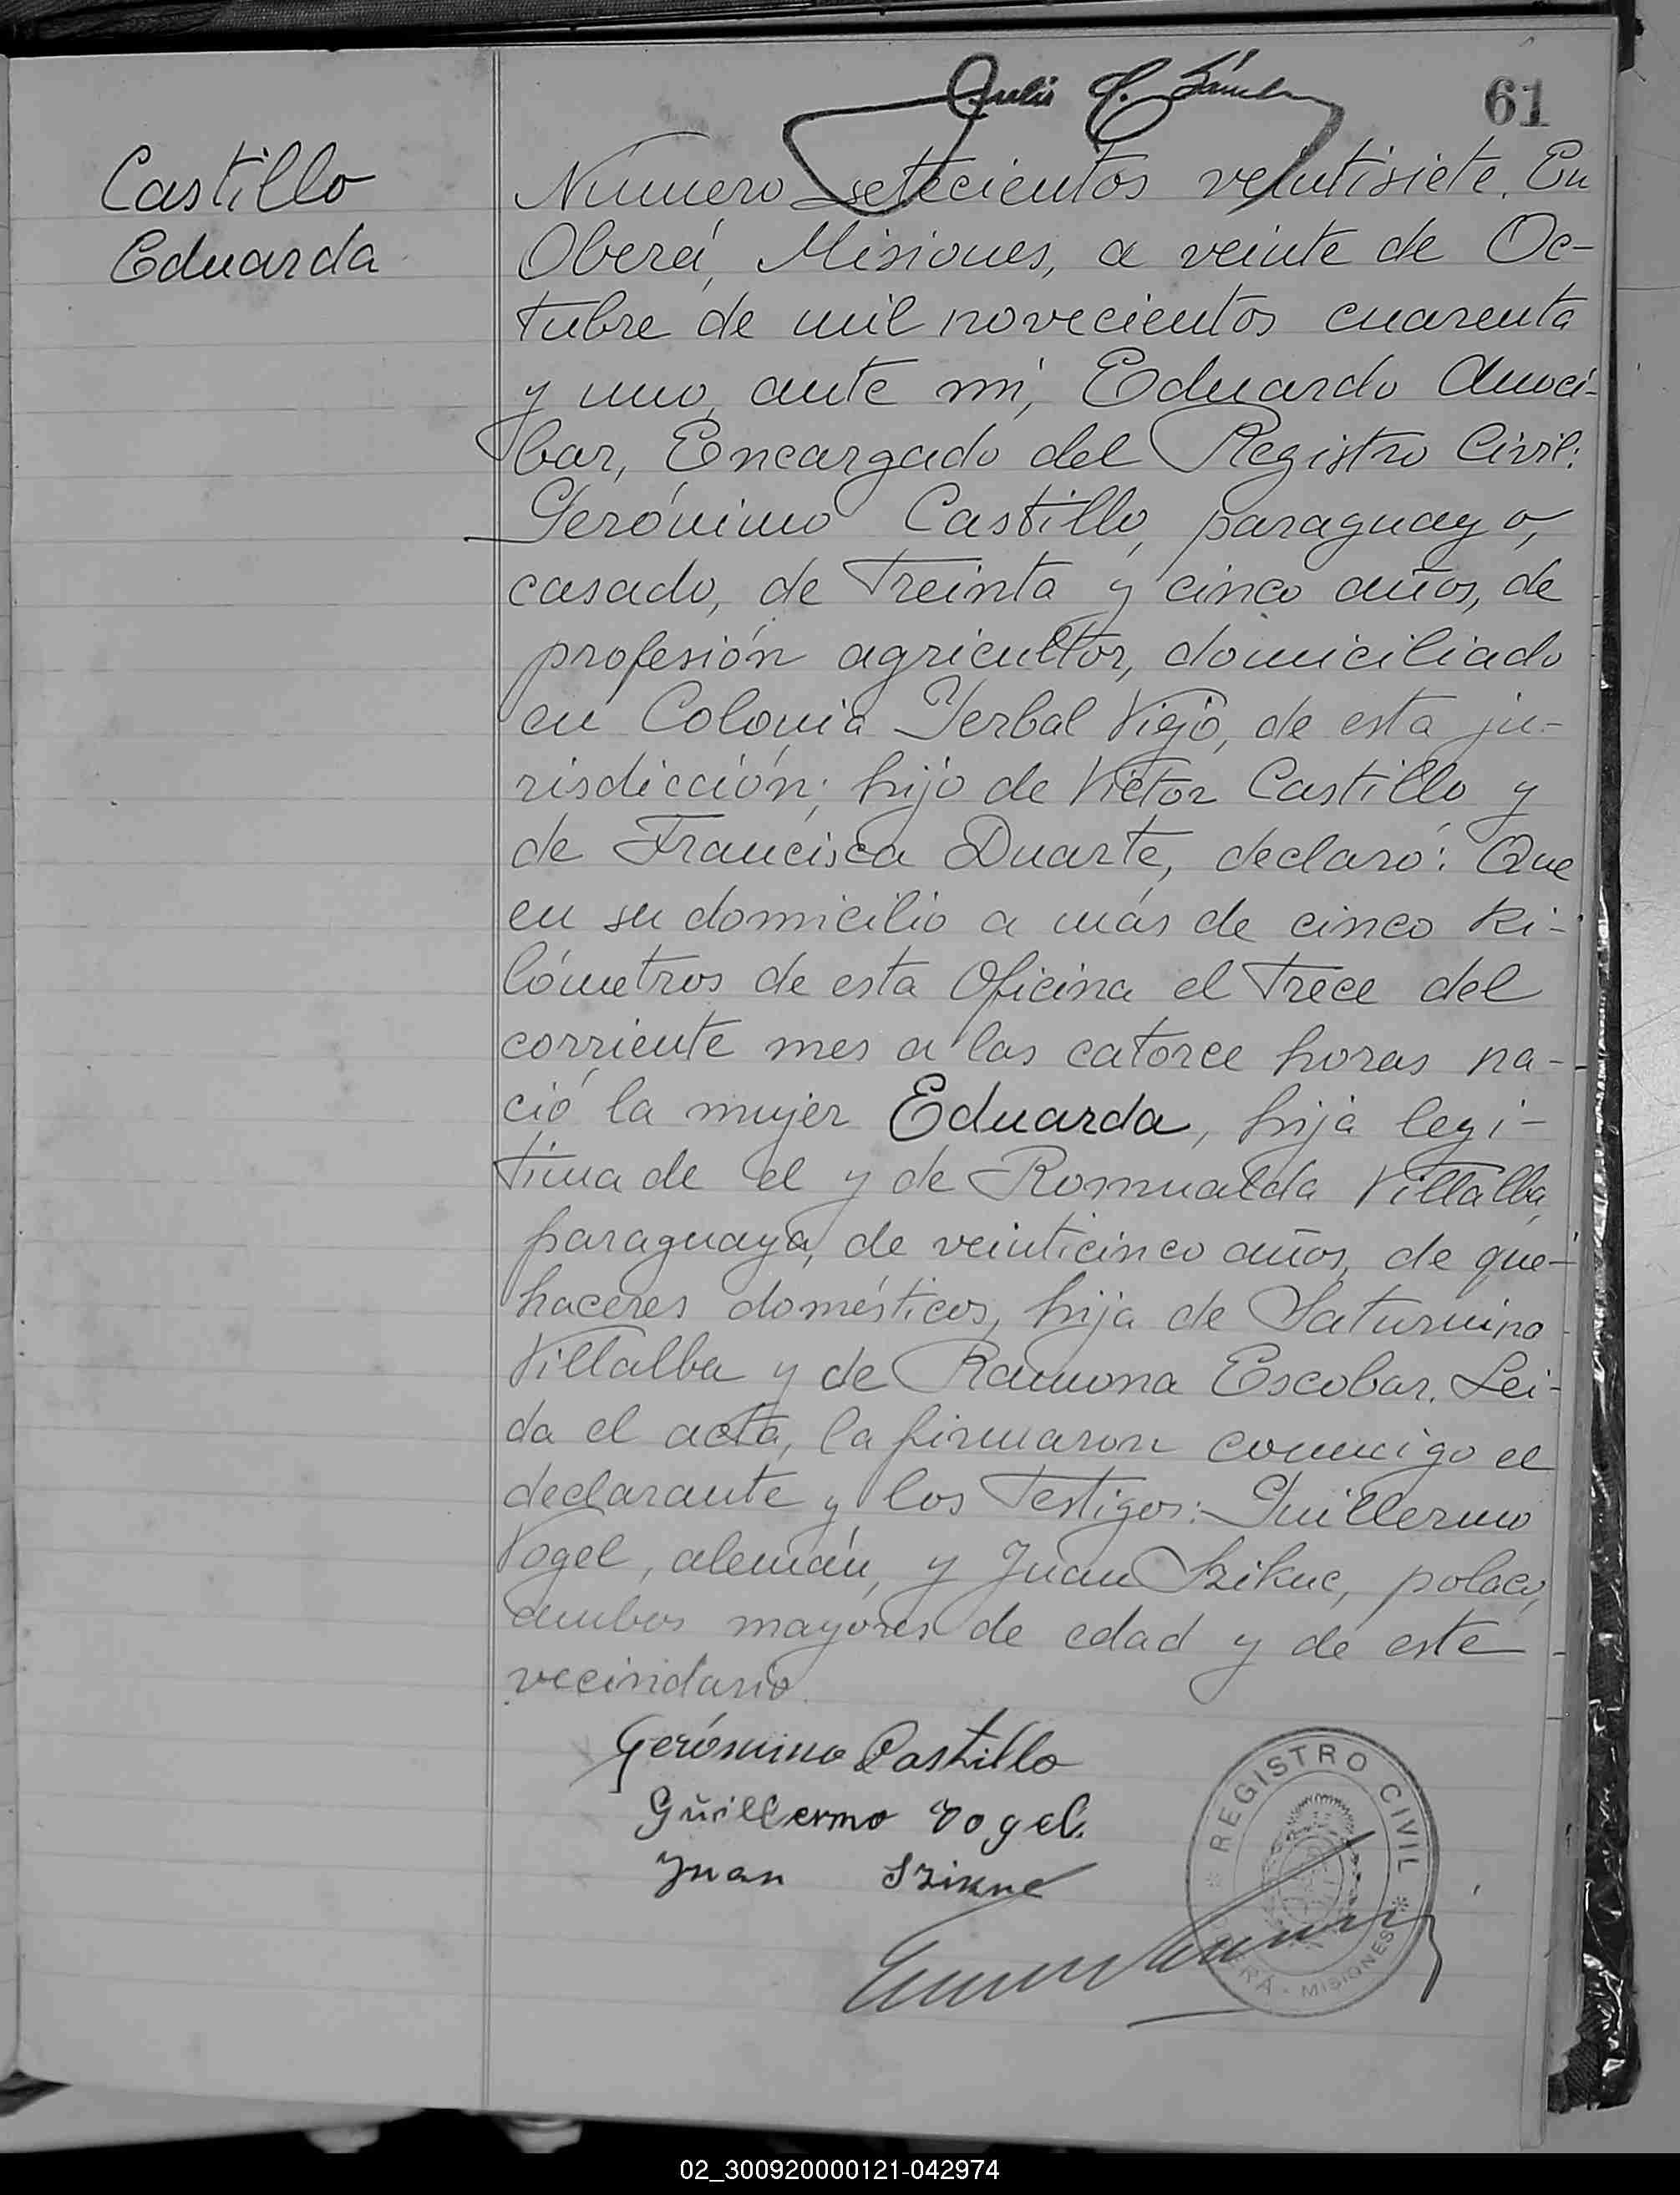 61
Castillo
Eduarda
Número setecientos veintisiete. En
Oberá, Misiones, a veinte de Oc-
tubre de mil novecientos cuarenta
y uno, ante mí, Eduardo Amoci-
bar, Encargado del Registro Civil:
Gerónimo Castillo, paraguayo,
casado, de treinta y cinco años, de
profesión agricultor, domiciliado
en Colonia Yerbal Viejo, de esta ju-
risdicción; hijo de Víctor Castillo y
de Francisca Duarte, declaró: Que
en su domicilio a más de cinco ki-
lómetros de esta Oficina el trece del
corriente mes a las catorce horas na-
ció la mujer Eduarda, hija legí-
tima de el y de Romualda Villalba,
paraguaya, de veinticinco años, de que-
haceres domésticos, hija de Saturnino
Villalba y de Ramona Escobar. Leí-
da el acta, la firmaron conmigo el
declarante y los testigos: Guillermo
Vogel, alemán, y Juan Szikue, polaco,
ambos mayores de edad y de este
vecindario.
Gerónimo Castillo
Guillermo Vogel.
Juan Szikue
REGISTRO CIVIL
RÁ - MISIONES
02_300920000121-042974